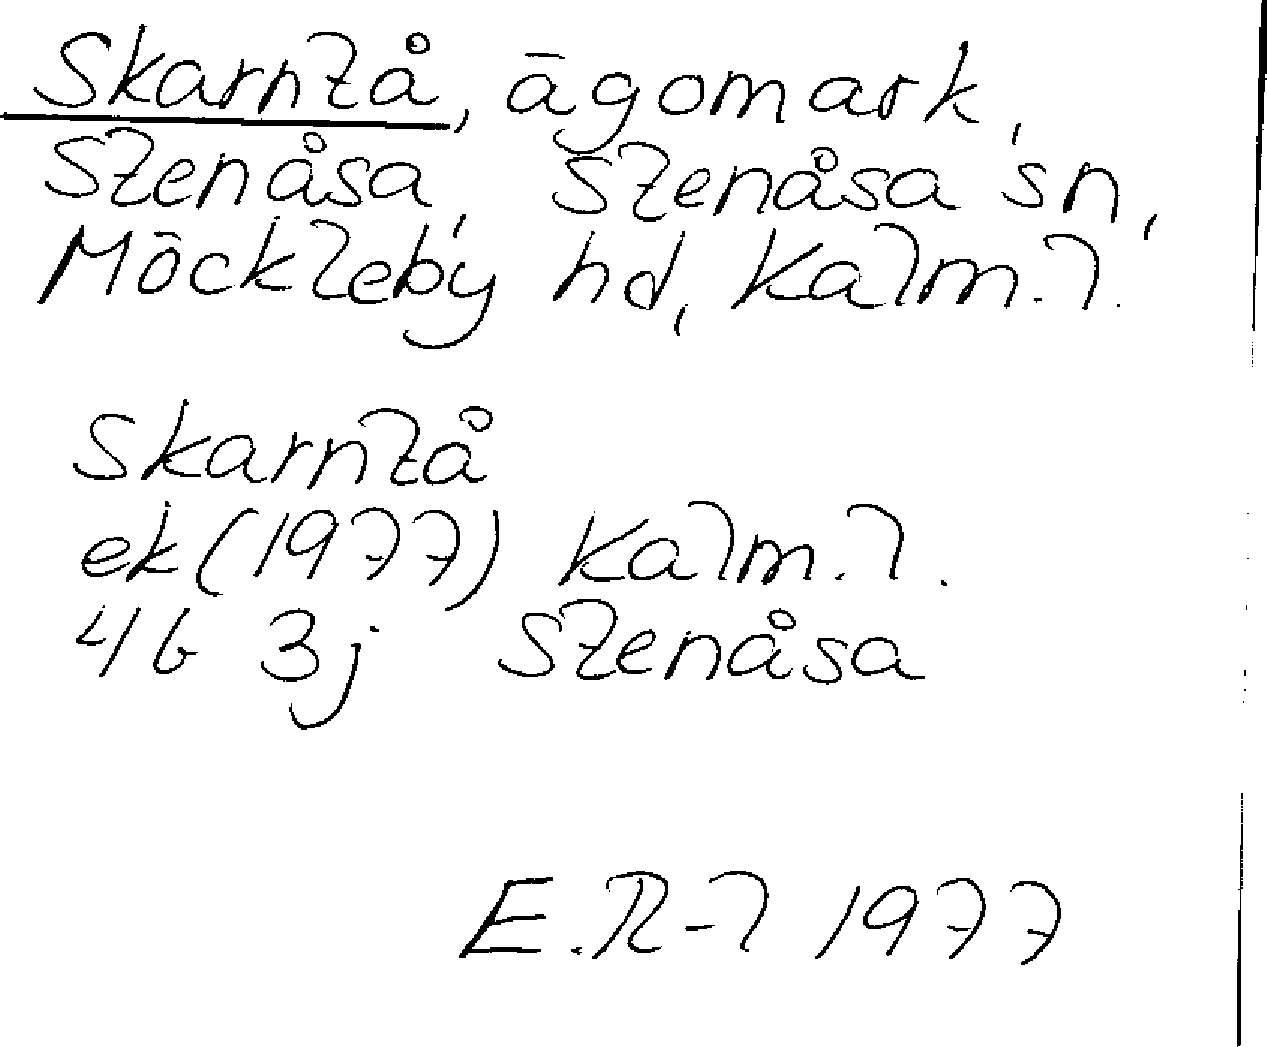 Skarntå, ägomark,
Stenåsa, Stenåsa sn,
Möckleby hd, Kalm. l.
Skarntå
ek (1977) Kalm. l.
4G 3j Stenåsa
E.R-l 1977